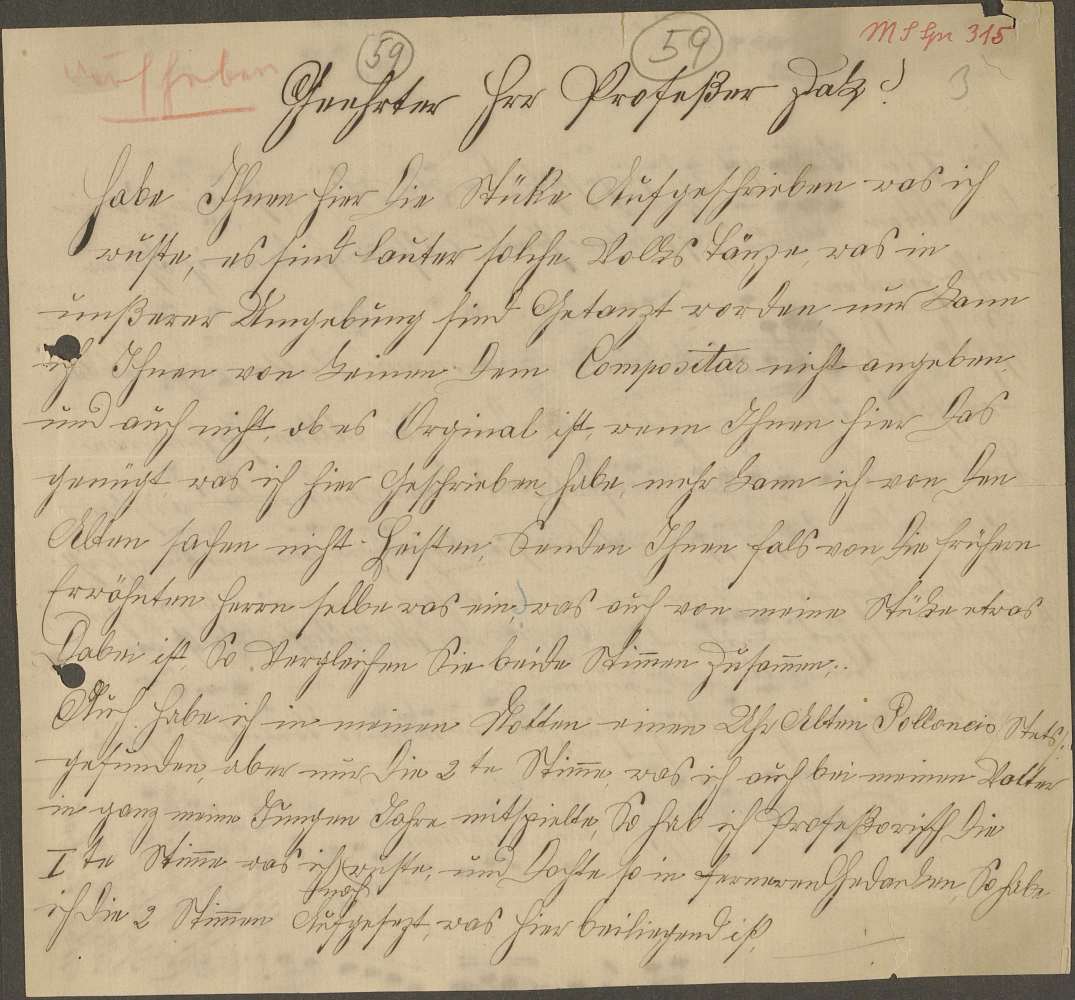 59 59 MS Spr 315
aufheben 3
Geehrter Hrr Profeßer Zak!
Habe Ihnen hier die Stüke Aufgeschrieben was ich
wuste, es sind lauter solche Volks Tänze, was in
unßerer Umgebung sind Getanzt worden nur kann
ich Ihnen von keinen dem Compositar nicht angeben,
und auch nicht, ob es Orginal ist, wenn Ihnen hier das
genügt, was ich hier Geschrieben habe, mehr kann ich von den
Alten sachen nicht Leisten, Senden Ihnen fals von die frühern
Erwöhnten Herrn selbe was ein, was auch von meine Stüke etwas
Dabei ist, So Vergleichen Sie beide Stimmen Zusammen.
Auch habe ich in meinen Notten einen Uhr Alten
gefunden, aber nur die 2te Stimme was ich auch bei meinen Vatter
in ganz meine Jungen Jahre mitspielte, So hab ich Profeßorisch die
Ite Stimme was ich wuste, und Dachte so in ferneren Gedanken, So habe
noch
ich die 2 Stimmen Aufgesezt, was hier beiliegend ist.